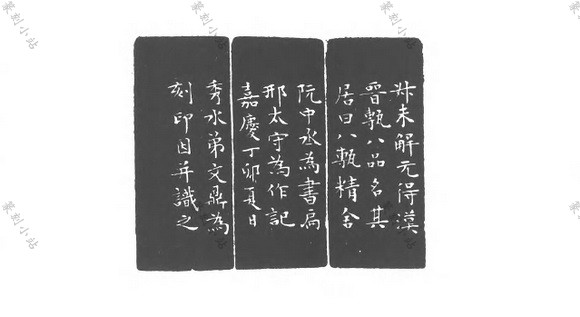 尗未解元得漢
晉甎八品名其
居曰八甎精舍
阮中丞為書扁
邢太守為作記
嘉慶丁卯夏日
秀水弟文鼎為
刻印因并識之
篆刻小站
篆刻小站
篆刻小站
篆刻小站
篆刻小站
篆刻小站